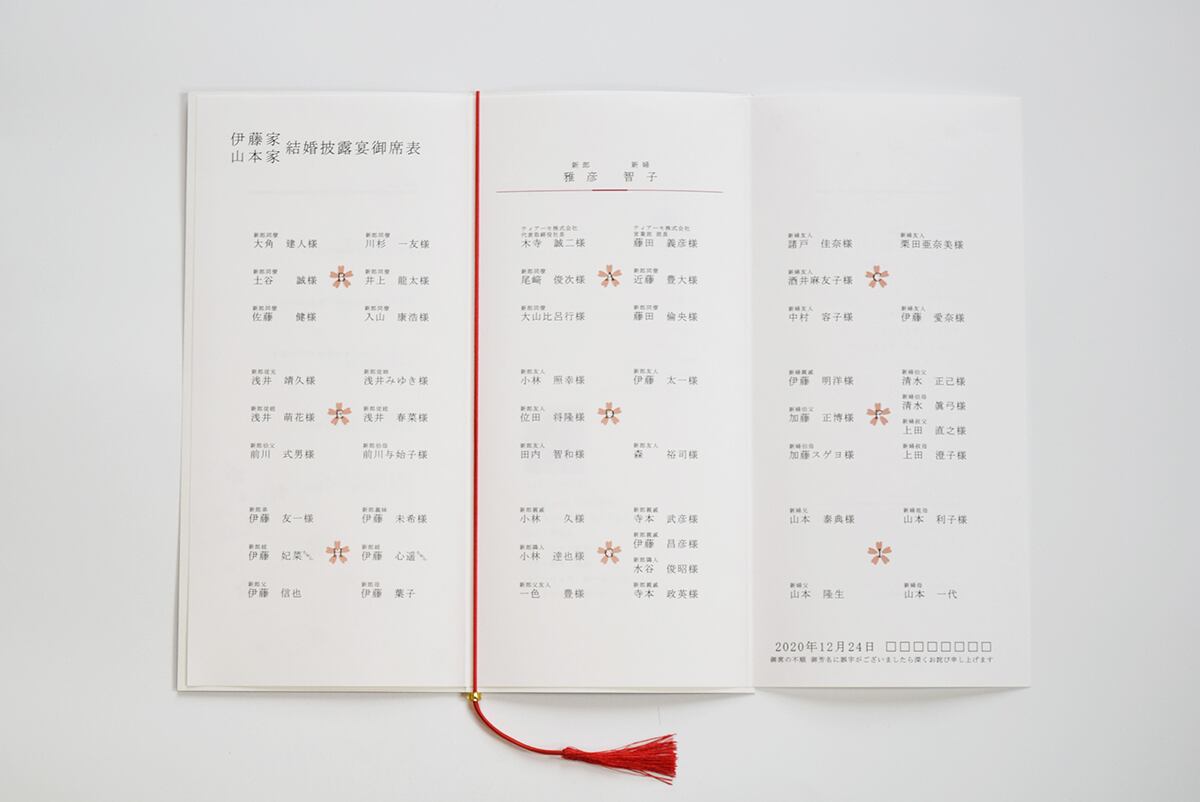 伊藤家
山本家
結婚披露宴御席表
新郎同僚
大角　建人様
新郎同僚
川杉　一友様
新郎同僚
土谷　誠様
B
新郎同僚
井上　龍太様
新郎同僚
佐藤　健様
新郎同僚
入山　康浩様
新郎従兄
浅井　靖久様
新郎従姉
浅井みゆき様
新郎従姪
浅井　萌花様
E
新郎従姪
浅井　春菜様
新郎伯父
前川　式男様
新郎伯母
前川与始子様
新郎弟
伊藤　友一様
新郎義妹
伊藤　未希様
新郎姪
伊藤　妃菜
H
新郎姪
伊藤　心遥
新郎父
伊藤　信也
新郎母
伊藤　葉子
新郎　新婦
雅彦　智子
ティアーモ株式会社
代表取締役社長
木寺　誠二様
ティアーモ株式会社
営業部 部長
藤田　義彦様
新郎同僚
尾﨑　俊次様
A
新郎同僚
近藤　豊大様
新郎同僚
大山比呂行様
新郎同僚
藤田　倫央様
新郎友人
小林　照幸様
新郎友人
伊藤　太一様
新郎友人
位田　将隆様
D
新郎友人
田内　智和様
新郎友人
森　裕司様
新郎親戚
小林　久様
新郎親戚
寺本　武彦様
新郎親戚
伊藤　昌彦様
新郎隣人
小林　達也様
G
新郎隣人
水谷　俊昭様
新郎父友人
一色　豊様
新郎親戚
寺本　政英様
新婦友人
諸戸　佳奈様
新婦友人
栗田亜奈美様
新婦友人
酒井麻友子様
C
新婦友人
中村　容子様
新婦友人
伊藤　愛奈様
新婦親戚
伊藤　明洋様
新婦伯父
清水　正己様
新婦伯母
清水　眞弓様
新婦伯父
加藤　正博様
F
新婦叔父
上田　直之様
新婦伯母
加藤スゲヨ様
新婦叔母
上田　澄子様
新婦兄
山本　泰典様
新婦祖母
山本　利子様
I
新婦父
山本　隆生
新婦母
山本　一代
2020年12月24日　□□□□□□□□
御席の不順 御芳名に誤字がございましたら深くお詫び申し上げます